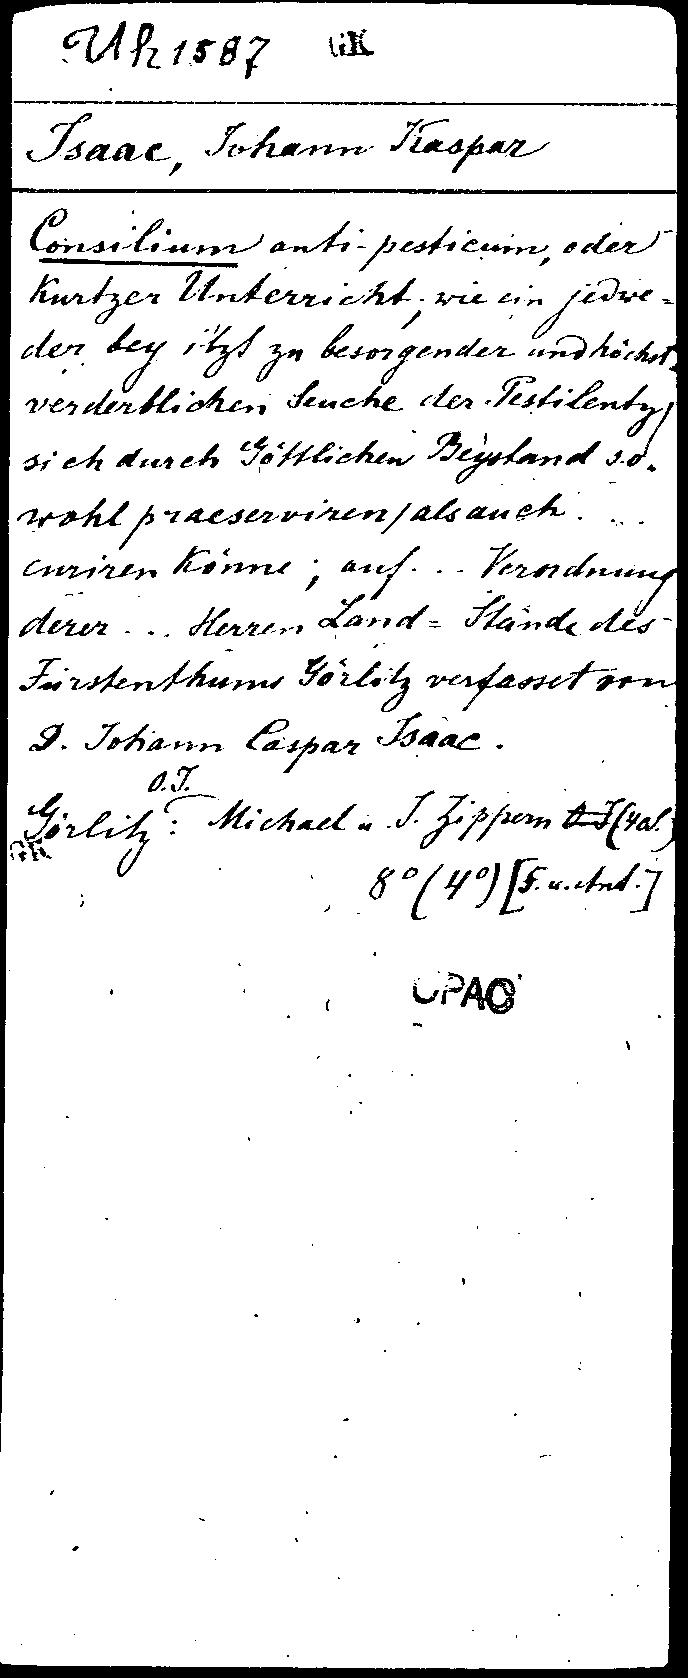 Uk 1587
Isaac, Johann Kaspar
Consilium anti-pesticum, oder
kurtzer Unterricht, wie ein jedwe=
der bey itzt zu besorgender und höchst-
verderblichen Seuche der Pestilentz /
sich durch Göttlichen Beystand so-
wohl praeserviren / als auch ...
curiren könne; auf ... Verordnung
derer ... Herren Land= Stände des
Fürstenthums Görlitz verfasset von
D. Johann Caspar Isaac.
o.J.
Görlitz: Michael u. J. Zippern
8° (4°) [F. u. Ant.]
OPAC